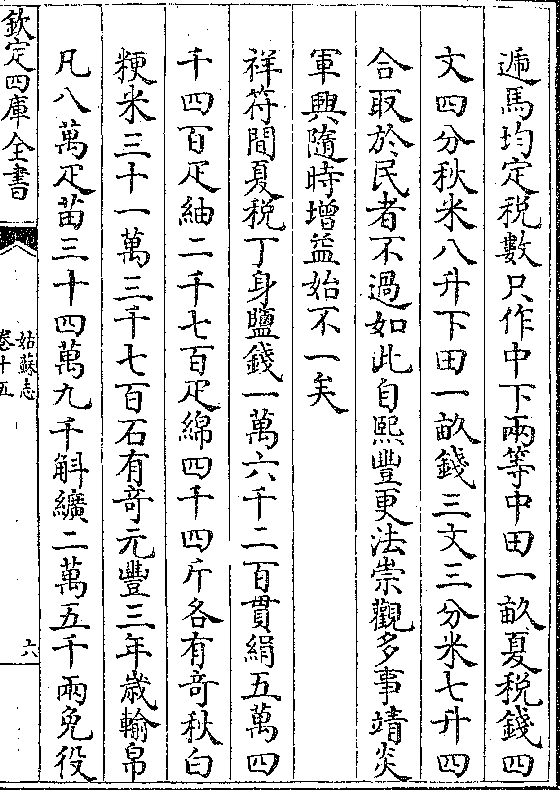 遞馬均定税數只作中下兩等中田一畝夏税錢四
文四分秋米八升下田一畝錢三文三分米七升四
合取於民者不過如此自熙豐更法崇觀多事靖炎
軍興隨時增益始不一矣
祥符間夏税丁身鹽錢一萬六千二百貫絹五萬四
千四百疋紬二千七百疋綿四千四斤各有竒秋白
粳米三十一萬三千七百石有竒元豐三年歳輸帛
凡八萬疋苗三十四萬九千斛纊二萬五千兩免役
欽定四庫全書
姑蘇志
卷十五
六